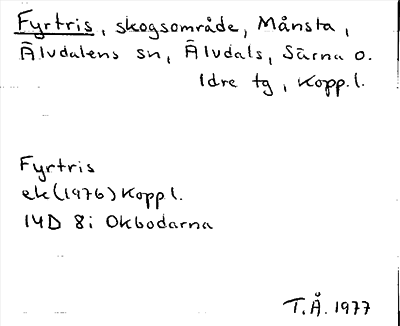 Fyrtris, skogsområde, Månsta,
Älvdalens sn, Älvdals, Särna o.
Idre tg, Kopp.l.
Fyrtris
ek(1976) Koppl.
14D 8i Okbodarna
T.Å. 1977